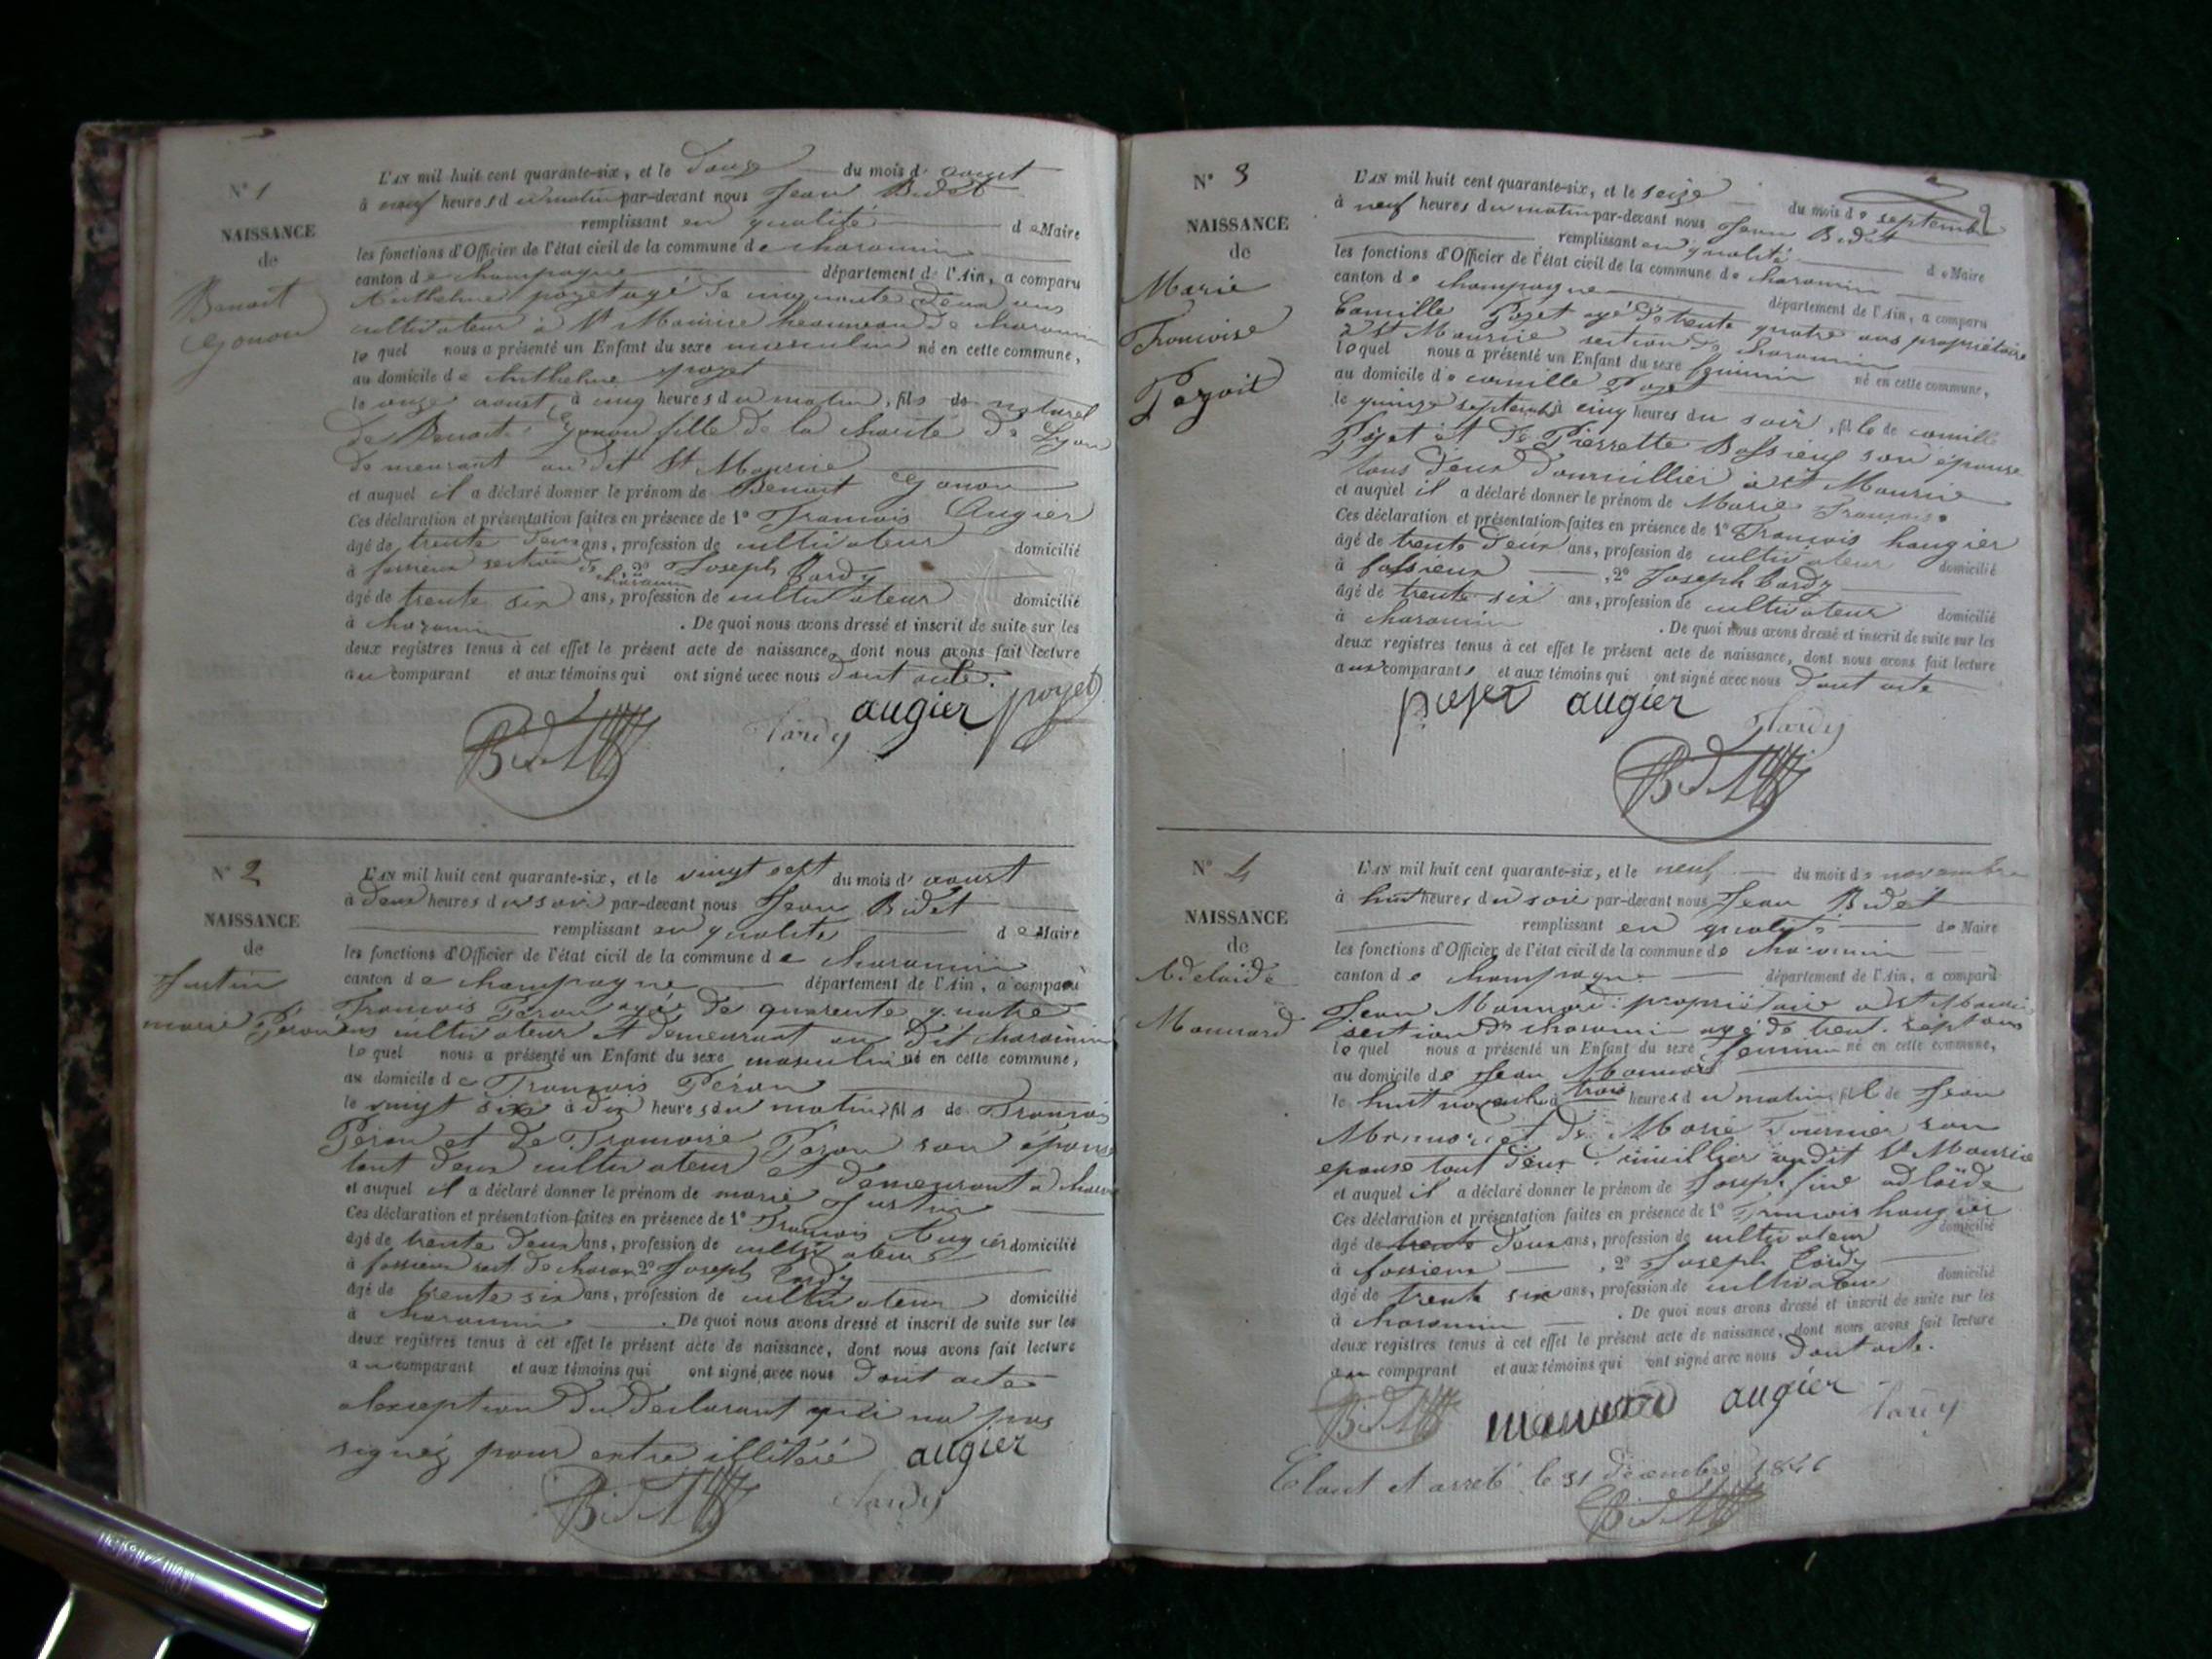 N° 1
NAISSANCE
de
Benoit
Gonon
L'AN mil huit cent quarante-six, et le douze du mois d' aoust
à neuf heures du matin par-devant nous Jean Bidet
remplissant en qualité de Maire
les fonctions d'Officier de l'état civil de la commune de charancin
canton de champagne département de l'Ain, a comparu
Anthelme pozet agé de cinquante deux ans
cultivateur à St Maurice hameau de charancin
lequel nous a présenté un Enfant du sexe masculin né en cette commune,
au domicile de Anthelme pozet
le onze aoust à cinq heures du matin, fils de naturel
de Benoite Gonon fille de la charité de Lyon
demeurant au dit St Maurice
et auquel il a déclaré donner le prénom de Benoit Gonon
Ces déclaration et présentation faites en présence de 1° Francois Augier
âgé de trente deux ans, profession de cultivateur domicilié
à fossieux section de charancin 2° Joseph Tardy
âgé de trente six ans, profession de cultivateur domicilié
à charancin . De quoi nous avons dressé et inscrit de suite sur les
deux registres tenus à cet effet le présent acte de naissance, dont nous avons fait lecture
au comparant et aux témoins qui ont signé avec nous dont acte.
Tardy augier pozet
Bidet
N° 2
NAISSANCE
de
Justin
marie Péron
L'AN mil huit cent quarante-six, et le vingt sept du mois d' aoust
à deux heures du soir par-devant nous Jean Bidet
remplissant en qualité de Maire
les fonctions d'Officier de l'état civil de la commune de charancin
canton de champagne département de l'Ain, a comparu
Francois Peron agé de quarente quatre
ans cultivateur et demeurant au dit charancin
lequel nous a présenté un Enfant du sexe masculin né en cette commune,
au domicile de Francois Péron
le vingt six à dix heures du matin, fils de Francois
Péron et de Francoise Péron son épouse
tout deux cultivateur et demeurant à charan
et auquel il a déclaré donner le prénom de marie Justin
Ces déclaration et présentation faites en présence de 1° Francois Augier
âgé de trente deux ans, profession de cultivateur domicilié
à fossieux sect. de charan 2° Joseph Tardy
âgé de trente six ans, profession de cultivateur domicilié
à charancin . De quoi nous avons dressé et inscrit de suite sur les
deux registres tenus à cet effet le présent acte de naissance, dont nous avons fait lecture
au comparant et aux témoins qui ont signé avec nous dont acte
alexception du declarant qui na pas
signéz pour entre illitéré augier
Bidet Tardy
N° 3
NAISSANCE
de
Marie
Francoise
Pozoit
2
L'AN mil huit cent quarante-six, et le seize du mois de septembre
à neuf heures du matin par-devant nous Jean Bidet
remplissant en qualité de Maire
les fonctions d'Officier de l'état civil de la commune de charancin
canton de champagne département de l'Ain, a comparu
Camille Pozet agé de trente quatre ans propriétaire
à St Maurice section de charancin
lequel nous a présenté un Enfant du sexe feminin né en cette commune,
au domicile de camille Pozet
le quinze septemb à cinq heures du soir, fille de camille
Pozet et de Pierrette Bossieux son épouse
tous deux domicillier à St Maurice
et auquel il a déclaré donner le prénom de Marie Francoise
Ces déclaration et présentation faites en présence de 1° Francois haugier
âgé de trente deux ans, profession de cultivateur domicilié
à fossieux , 2° Joseph Tardy
âgé de trente six ans, profession de cultivateur domicilié
à charancin . De quoi nous avons dressé et inscrit de suite sur les
deux registres tenus à cet effet le présent acte de naissance, dont nous avons fait lecture
aux comparants et aux témoins qui ont signé avec nous dont acte
pozet augier Tardy
Bidet
N° 4
NAISSANCE
de
Adelaïde
Monnard
L'AN mil huit cent quarante-six, et le neuf du mois de novembre
à huit heures du soir par-devant nous Jean Bidet
remplissant en qualité de Maire
les fonctions d'Officier de l'état civil de la commune de charancin
canton de champagne département de l'Ain, a comparu
Jean Monnard propriétaire a St Mauric
section de charancin agé de trent. sept ans
lequel nous a présenté un Enfant du sexe feminin né en cette commune,
au domicile de Jean Monnard
le huit novembre à trois heures du matin, fille de Jean
Monnard et de Marie Fournier son
epouse tout deux audit St Maurice
et auquel il a déclaré donner le prénom de Josephfine adlaïde
Ces déclaration et présentation faites en présence de 1° Francois haugier
âgé de trente deux ans, profession de cultivateur domicilié
à fossieux , 2° Joseph Tardy
âgé de trente six ans, profession de cultivateur domicilié
à charancin . De quoi nous avons dressé et inscrit de suite sur les
deux registres tenus à cet effet le présent acte de naissance, dont nous avons fait lecture
au comparant et aux témoins qui ont signé avec nous dont acte.
Bidet monnard augier Tardy
Clout et arreté le 31 décembre 1846
Bidet